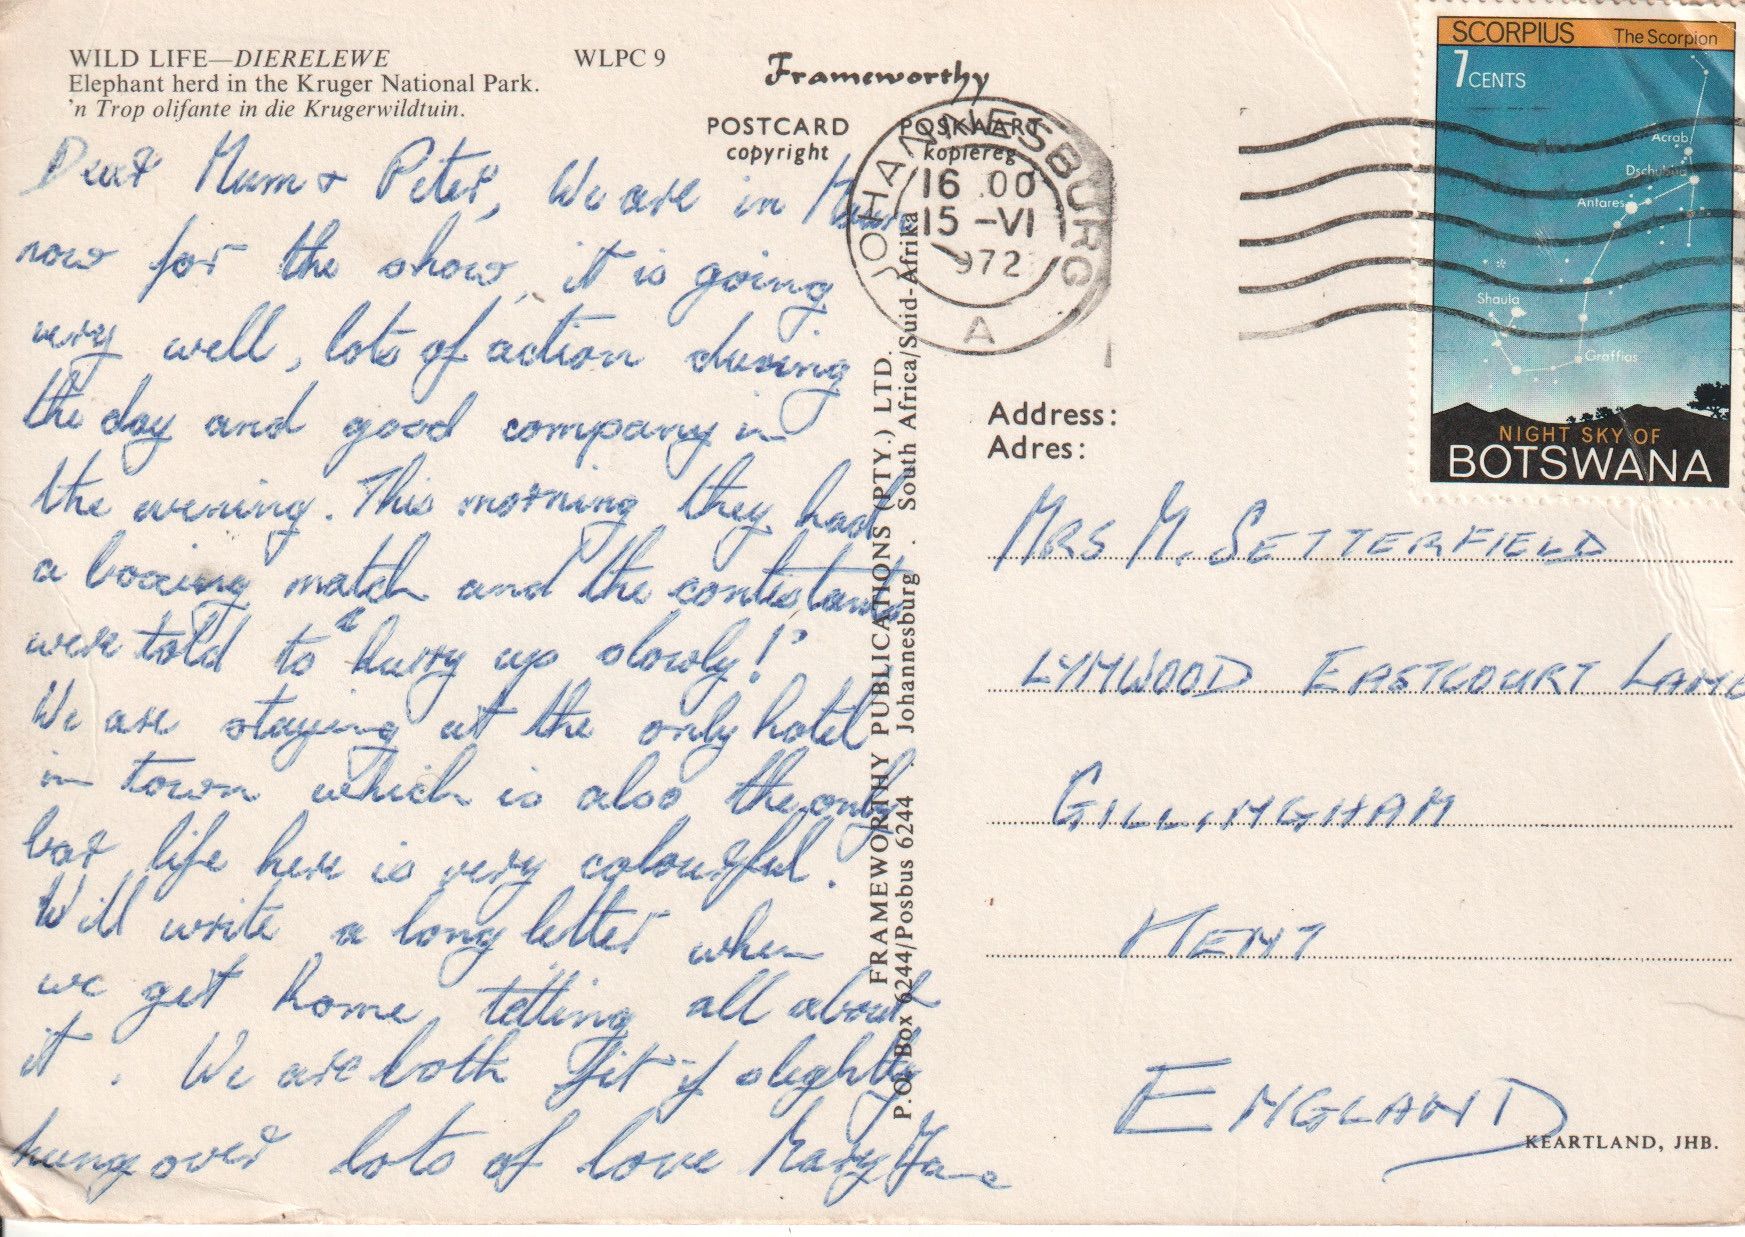 WILD LIFE—DIERELEWE
WLPC 9
Elephant herd in the Kruger National Park.
'n Trop olifante in die Krugerwildtuin.
Frameworthy
POSTCARD POSKAART
copyright kopiereg
JOHANNESBURG
16 00
15 -VI
1972
A
SCORPIUS The Scorpion
7 CENTS
Acrab
Dschubba
Antares
Shaula
Graffias
NIGHT SKY OF
BOTSWANA
Dear Mum + Peter, We are in
now for the show, it is going
very well, lots of action during
the day and good company in
the evening. This morning they had
a boxing match and the contestants
were told to "hurry up slowly!"
We are staying at the only hotel
in town which is also the only
bar, life here is very colourful.
Will write a long letter when
we get home, telling all about
it. We are both fit if slightly
hungover lots of love Mary Jane
FRAMEWORTHY PUBLICATIONS (PTY.) LTD.
P.O. Box 6244/Posbus 6244 . Johannesburg . South Africa/Suid-Afrika
Address:
Adres:
MRS M. SETTERFIELD
LYNWOOD EASTCOURT LANE
GILLINGHAM
KENT
ENGLAND
KEARTLAND, JHB.